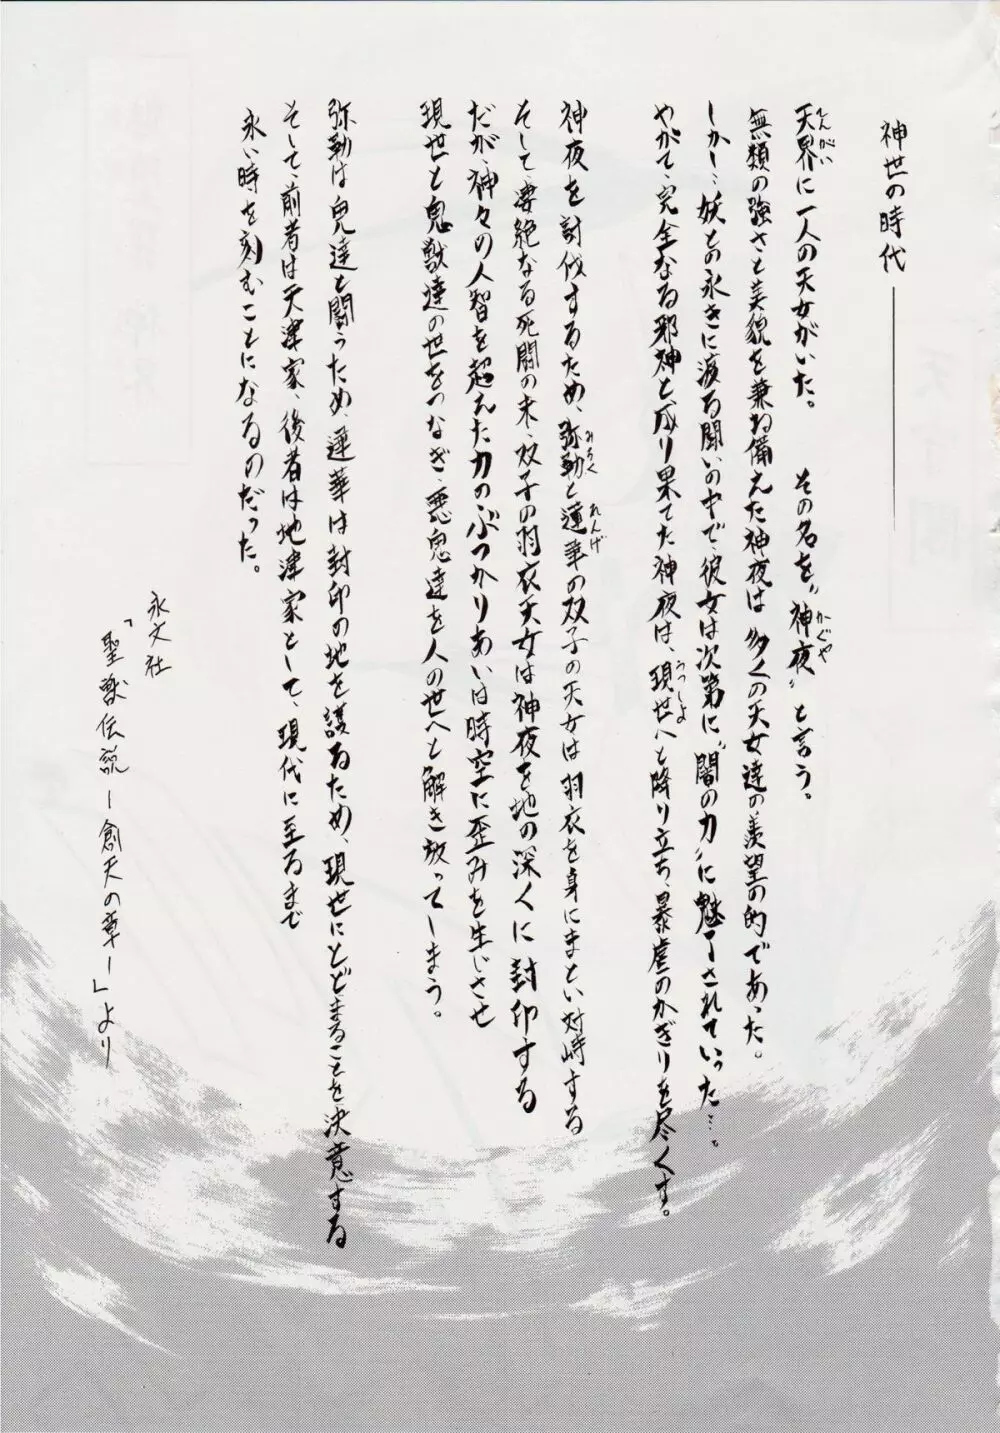 神世の時代――――
天界に一人の天女がいた。　その名を〝神夜〟と言う。
無類の強さと美貌を兼ね備えた神夜は多くの天女達の羨望の的であった。
しかし…妖との永きに渡る闘いの中で、彼女は次第に〝闇の力〟に魅了されていった…。
やがて、完全なる邪神と成り果てた神夜は、現世へと降り立ち、暴虐のかぎりを尽くす。
神夜を討伐するため、弥勒と蓮華の双子の天女は羽衣を身にまとい対峙する
そして、凄絶なる死闘の末、双子の羽衣天女は神夜を地の深くに封印する
だが、神々の人智を超えた力のぶつかりあいは時空に歪みを生じさせ
現世と鬼獣達の世をつなぎ、悪鬼達を人の世へと解き放ってしまう。
弥勒は鬼達と闘うため、蓮華は封印の地を護るため、現世にとどまることを決意する
そして、前者は天津家、後者は地津家として、現代に至るまで
永い時を刻むことになるのだった。
永文社
「聖獣伝説－創天の章－」より